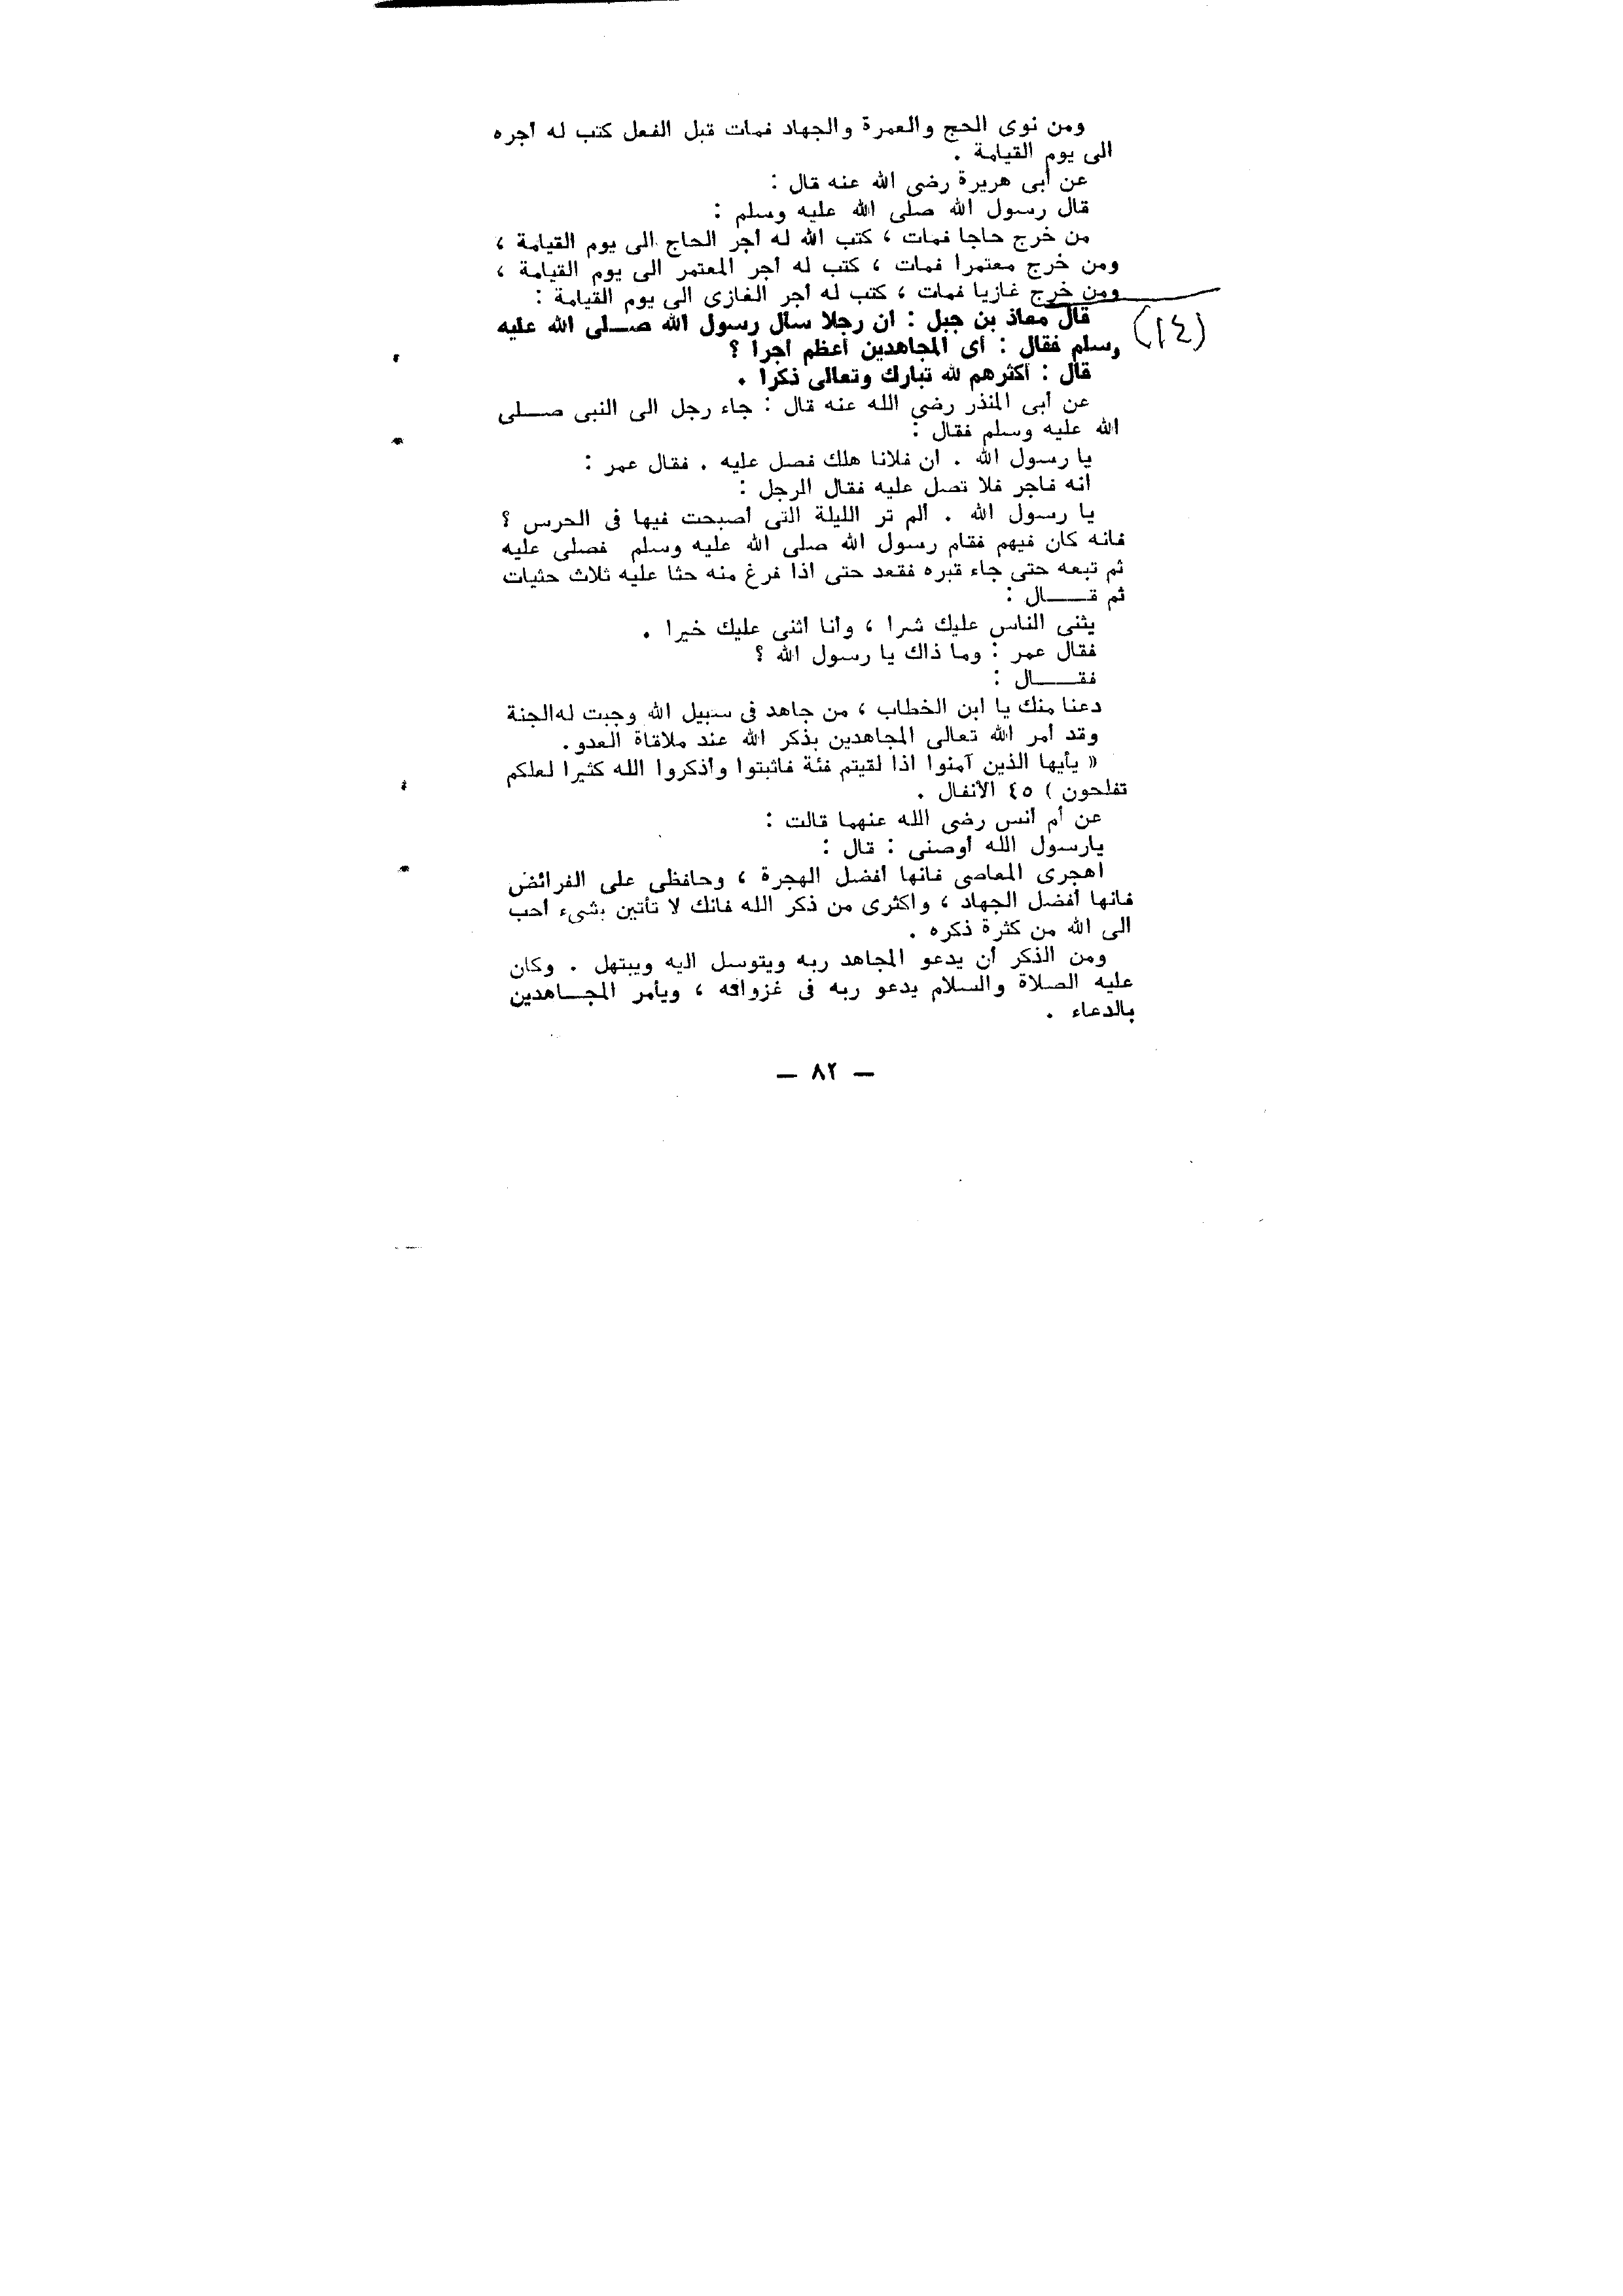 ومن نوى الحج والعمرة والجهاد فمات قبل الفعل كتب له أجره
الى يوم القيامة .
عن أبى هريرة رضى الله عنه قال :
قال رسول الله صلى الله عليه وسلم :
من خرج حاجا فمات ، كتب الله له أجر الحاج الى يوم القيامة ،
ومن خرج معتمرا فمات ، كتب له أجر المعتمر الى يوم القيامة ،
ومن خرج غازيا فمات ، كتب له أجر الغازى الى يوم القيامة :
قال معاذ بن جبل : ان رجلا سأل رسول الله صـلى الله عليه
(١٤)
وسلم فقال : أى المجاهدين أعظم أجرا ؟
قال : أكثرهم لله تبارك وتعالى ذكرا .
عن أبى المنذر رضى الله عنه قال : جاء رجل الى النبى صـلى
الله عليه وسلم فقال :
يا رسول الله . ان فلانا هلك فصل عليه . فقال عمر :
انه فاجر فلا تصل عليه فقال الرجل :
يا رسول الله . ألم تر الليلة التى أصبحت فيها فى الحرس ؟
فانه كان فيهم فقام رسول الله صلى الله عليه وسلم فصلى عليه
ثم تبعه حتى جاء قبره فقعد حتى اذا فرغ منه حثا عليه ثلاث حثيات
ثم قـــال :
يثنى الناس عليك شرا ، وأنا أثنى عليك خيرا .
فقال عمر : وما ذاك يا رسول الله ؟
فقـــال :
دعنا منك يا ابن الخطاب ، من جاهد فى سبيل الله وجبت له الجنة
وقد أمر الله تعالى المجاهدين بذكر الله عند ملاقاة العدو .
« يأيها الذين آمنوا اذا لقيتم فئة فاثبتوا وأذكروا الله كثيرا لعلكم
تفلحون ) ٤٥ الأنفال .
عن أم أنس رضى الله عنهما قالت :
يارسول الله أوصنى : قال :
اهجرى المعاصى فانها أفضل الهجرة ، وحافظى على الفرائض
فانها أفضل الجهاد ، واكثرى من ذكر الله فانك لا تأتين بشىء أحب
الى الله من كثرة ذكره .
ومن الذكر أن يدعو المجاهد ربه ويتوسل اليه ويبتهل . وكان
عليه الصلاة والسلام يدعو ربه فى غزواته ، ويأمر المجـاهدين
بالدعاء .
— ٨٢ —